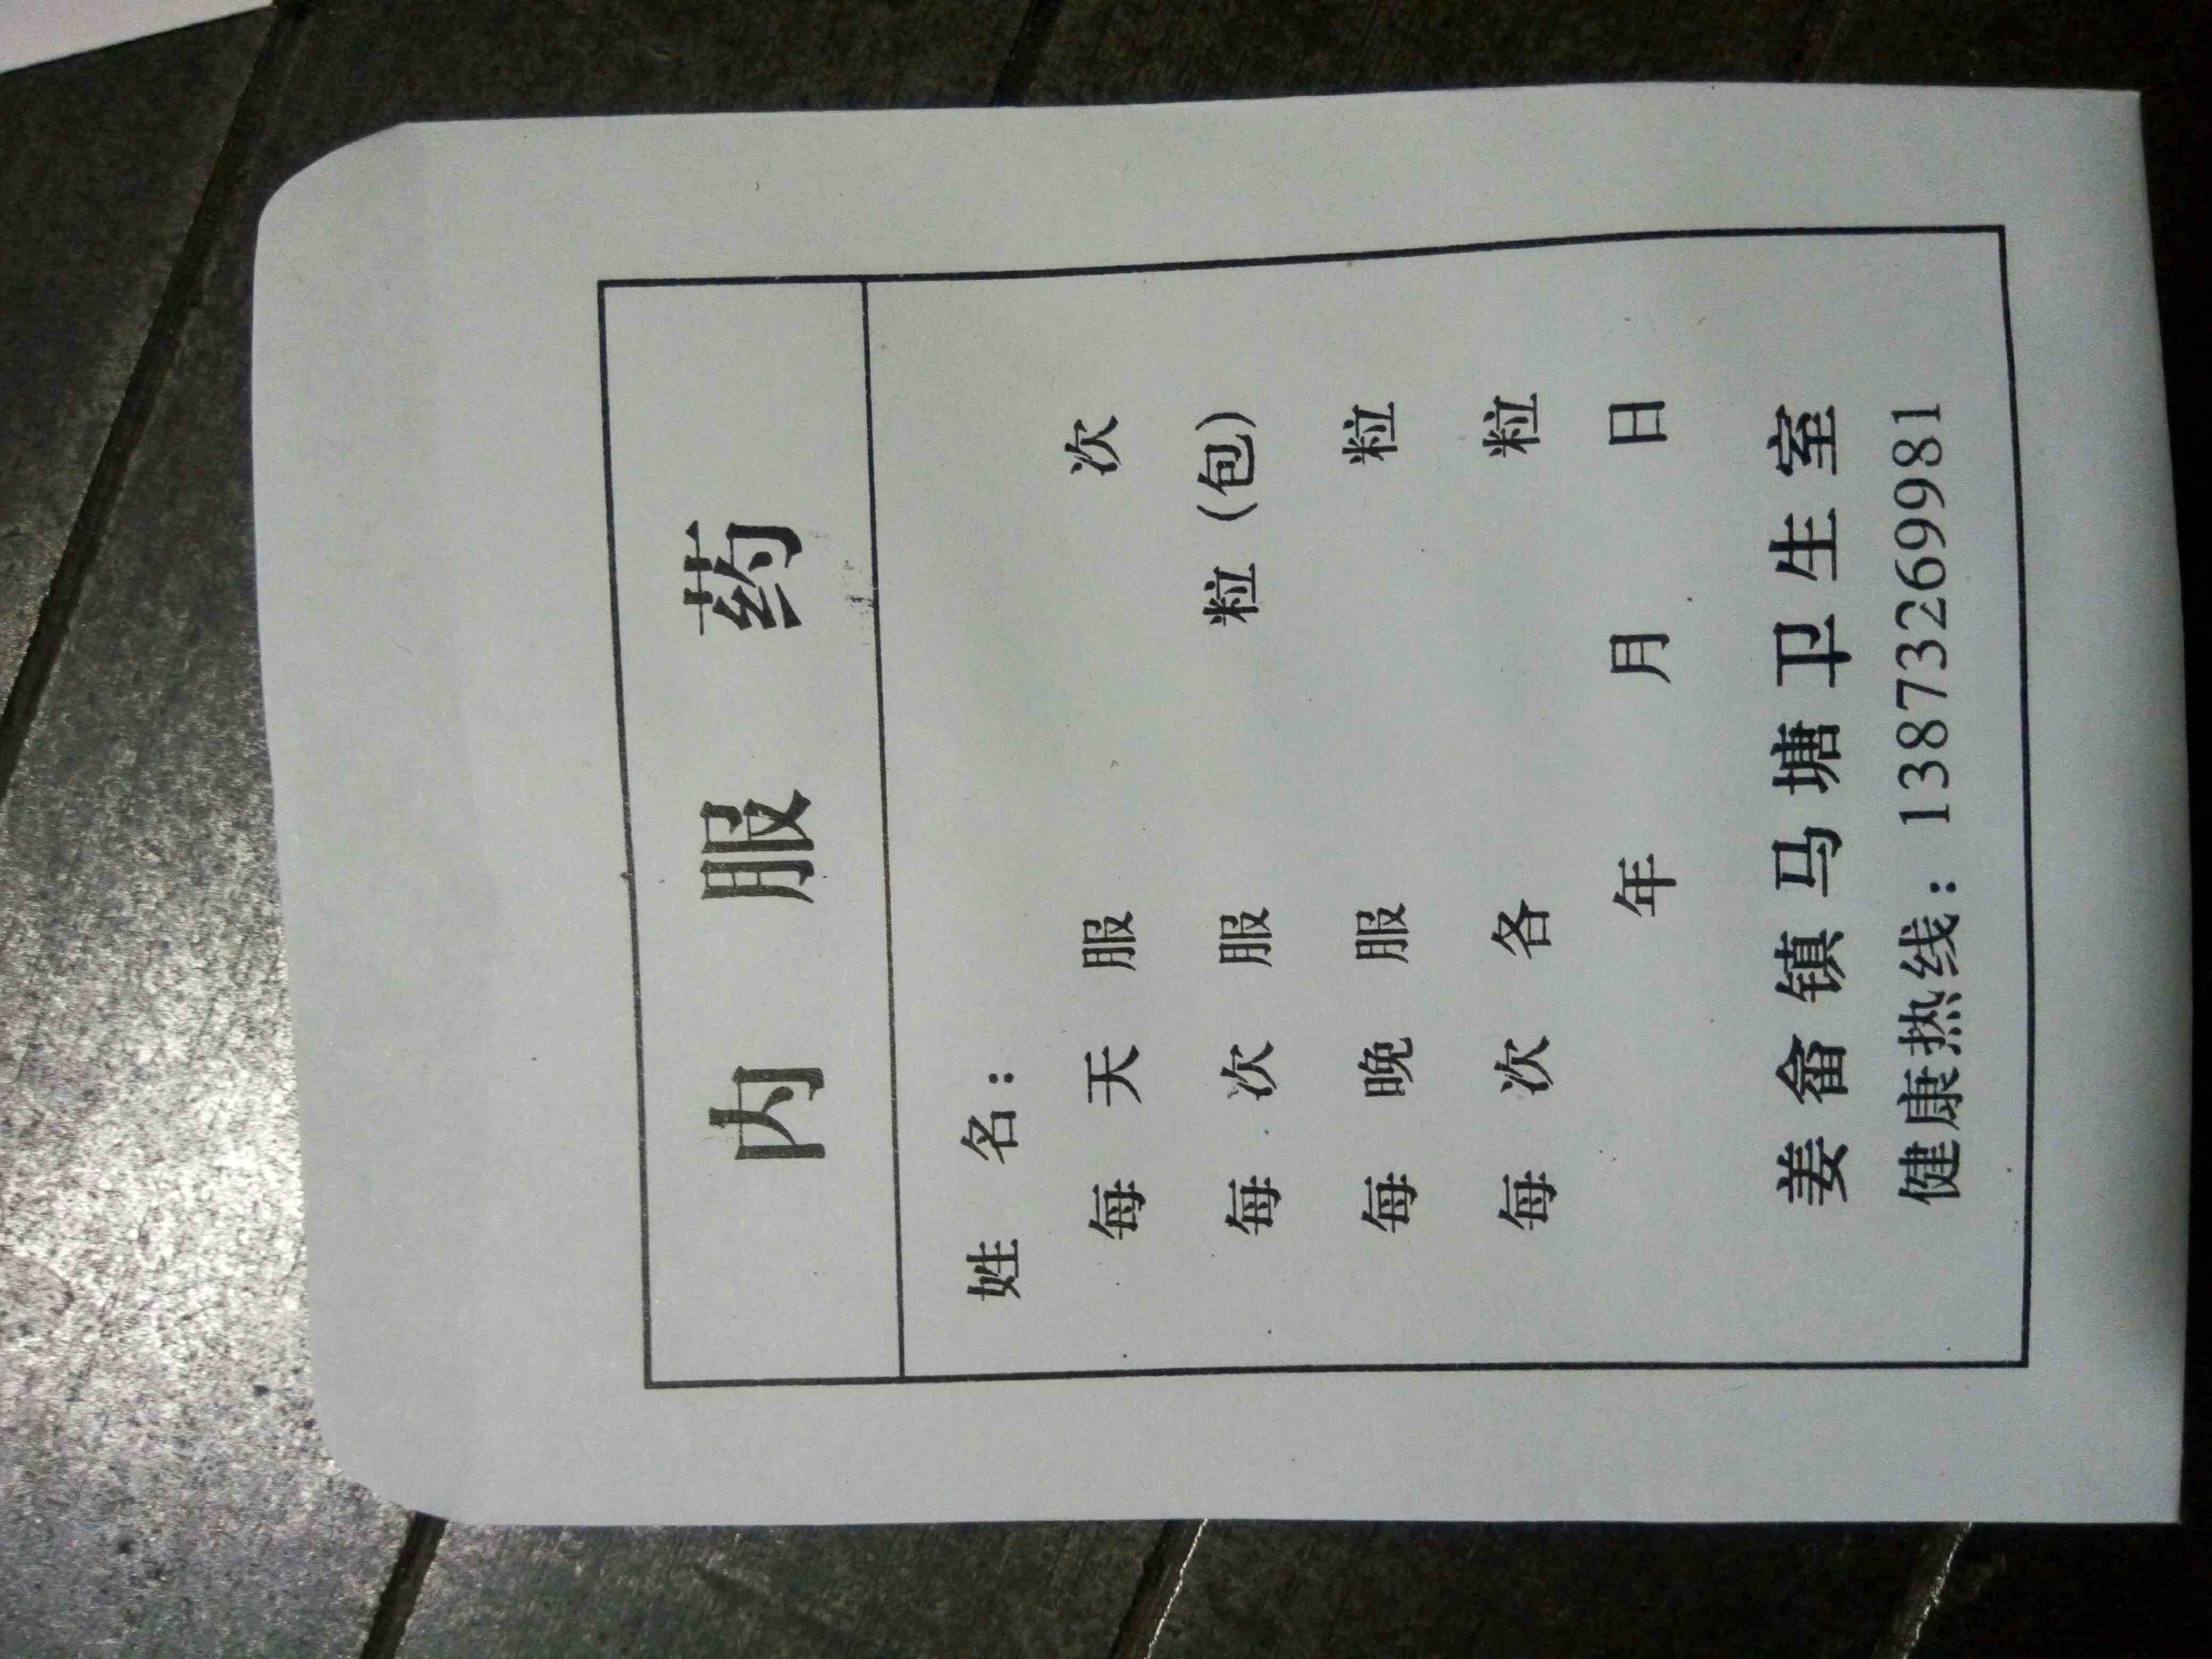 内服药
姓名：
每天服 次
每次服 粒（包）
每晚服 粒
每次各 粒
年 月 日
姜畲镇马塘卫生室
健康热线：13873269981